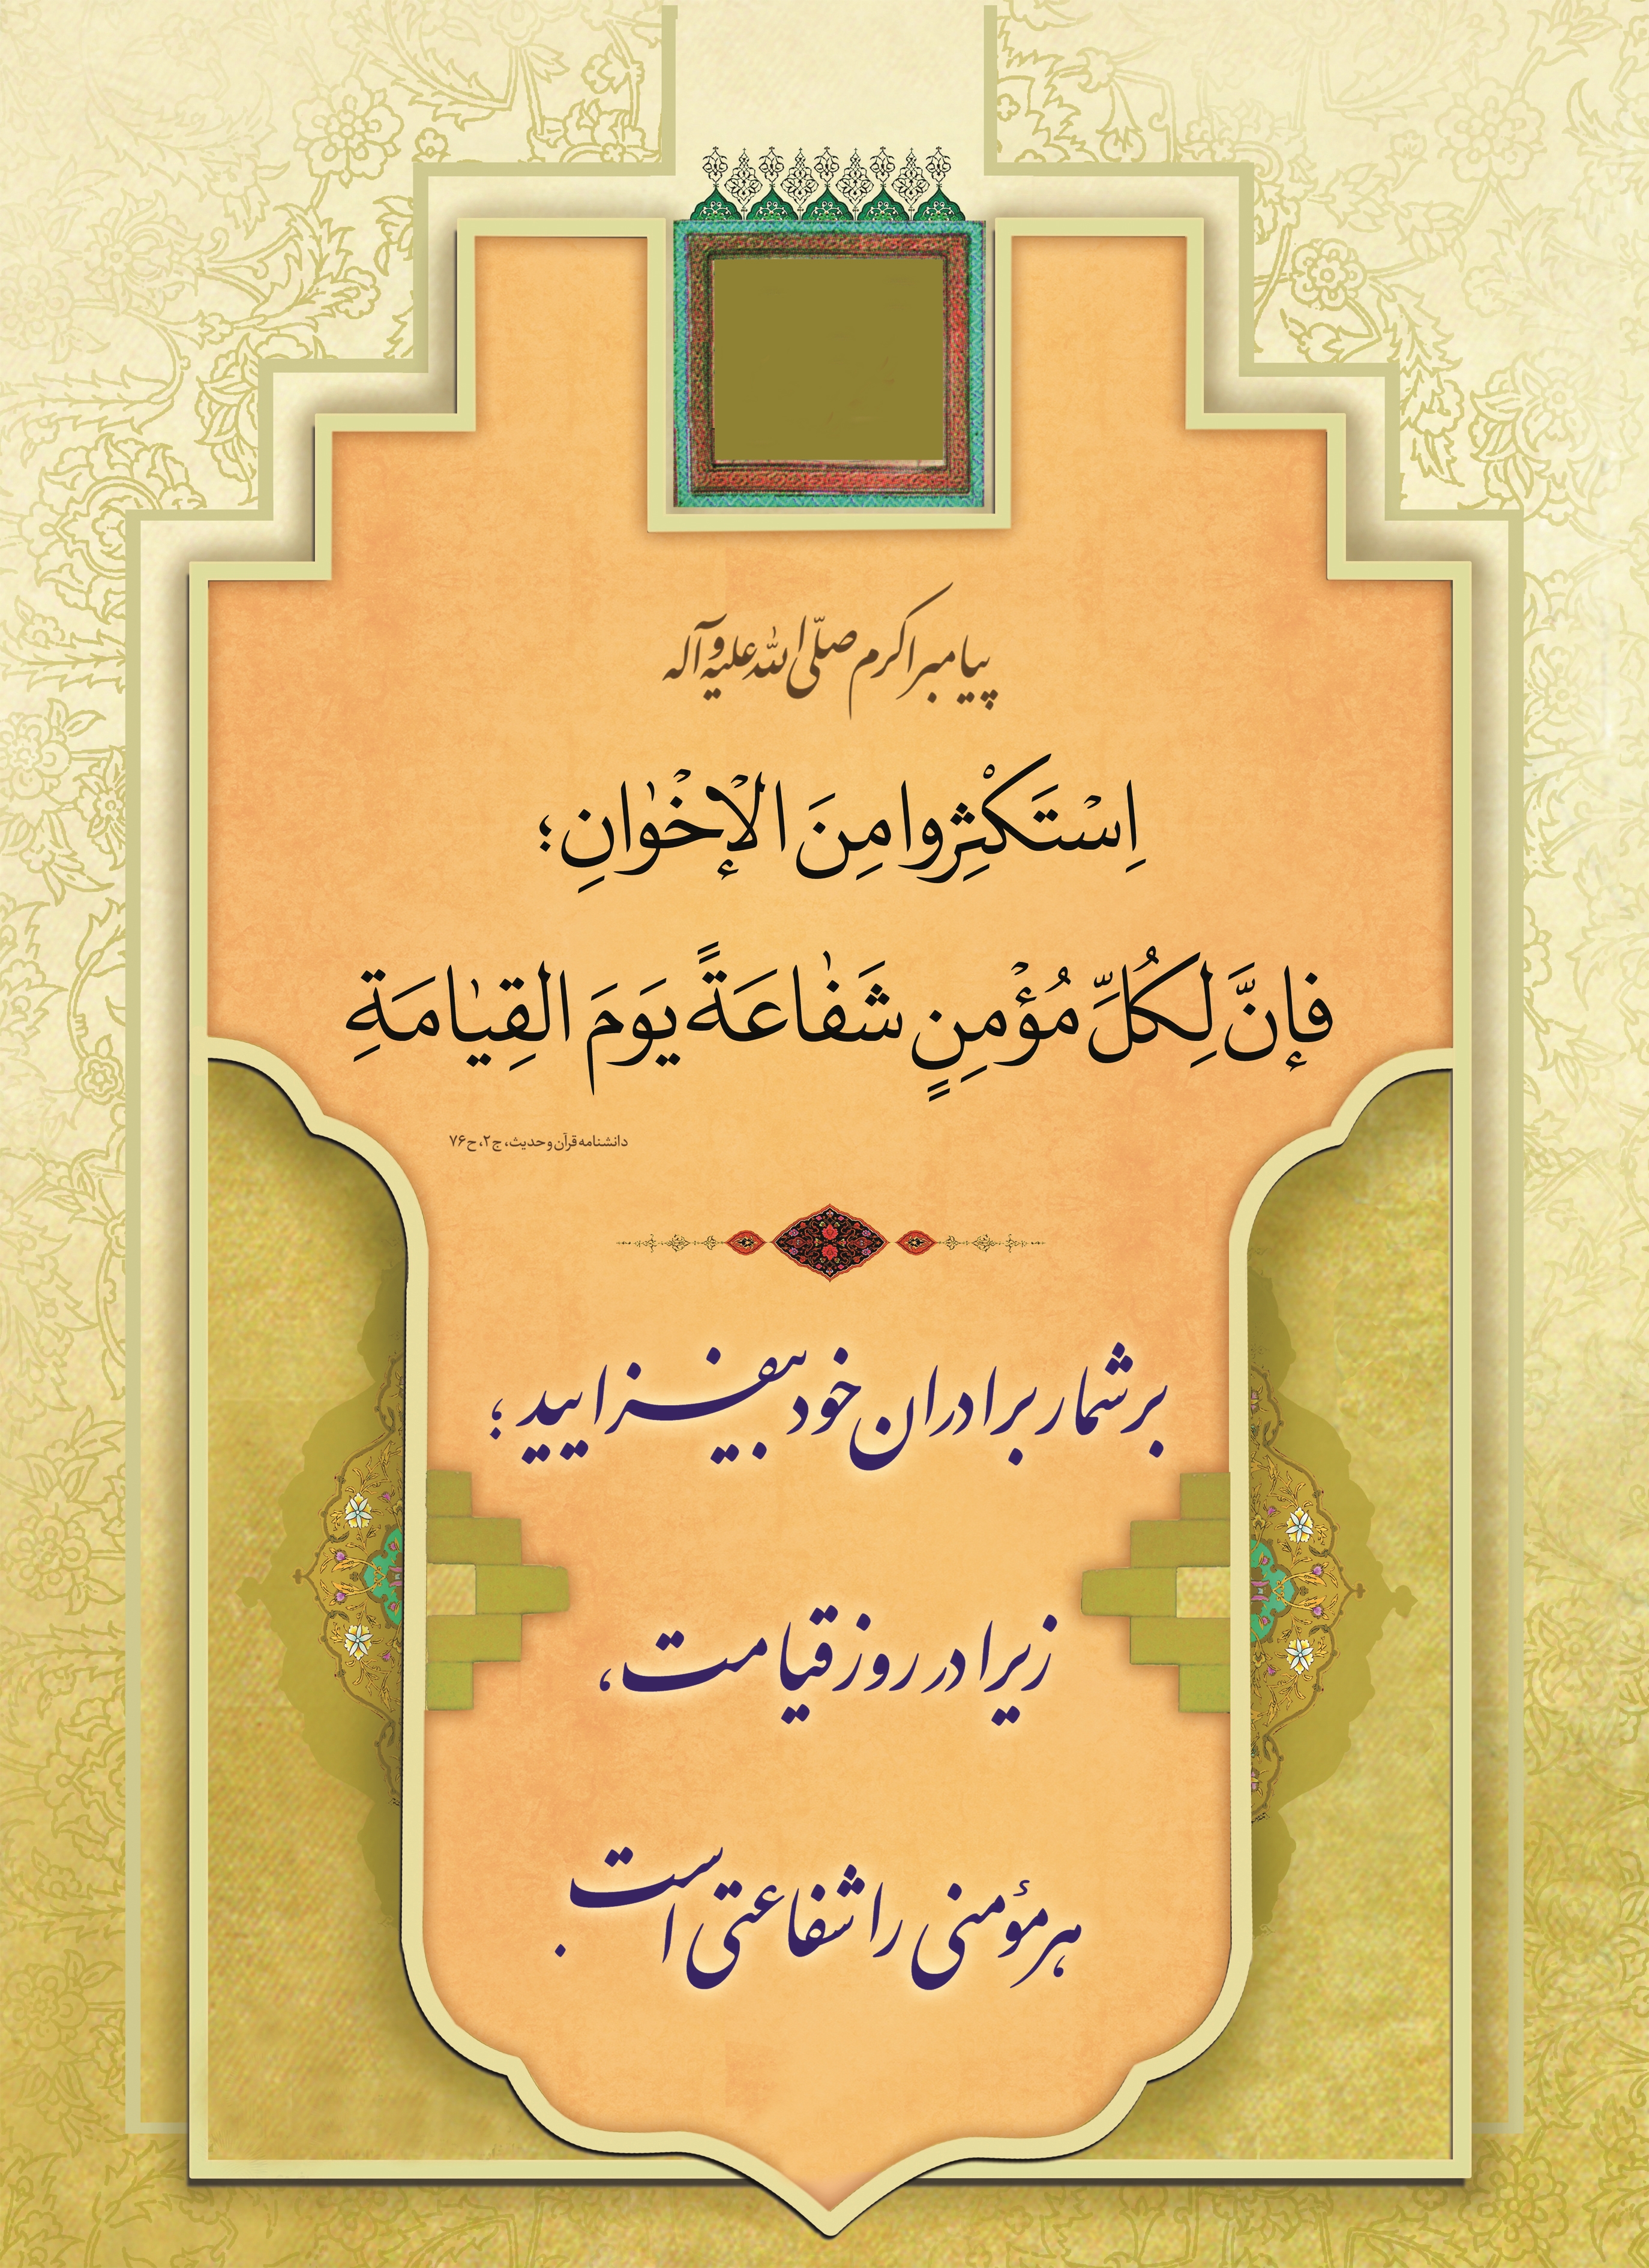 پیامبر اکرم صلّی الله علیه و آله
اِسْتَکْثِرُوا مِنَ الْإخْوٰانِ؛
فإنَّ لِکُلِّ مُؤْمِنٍ شَفٰاعَةً یَومَ القِیٰامَةِ
دانشنامه قرآن و حدیث، ج۲، ح۷۶
بر شمار برادران خود بیفزایید؛
زیرا در روز قیامت،
هر مؤمنی را شفاعتی است.